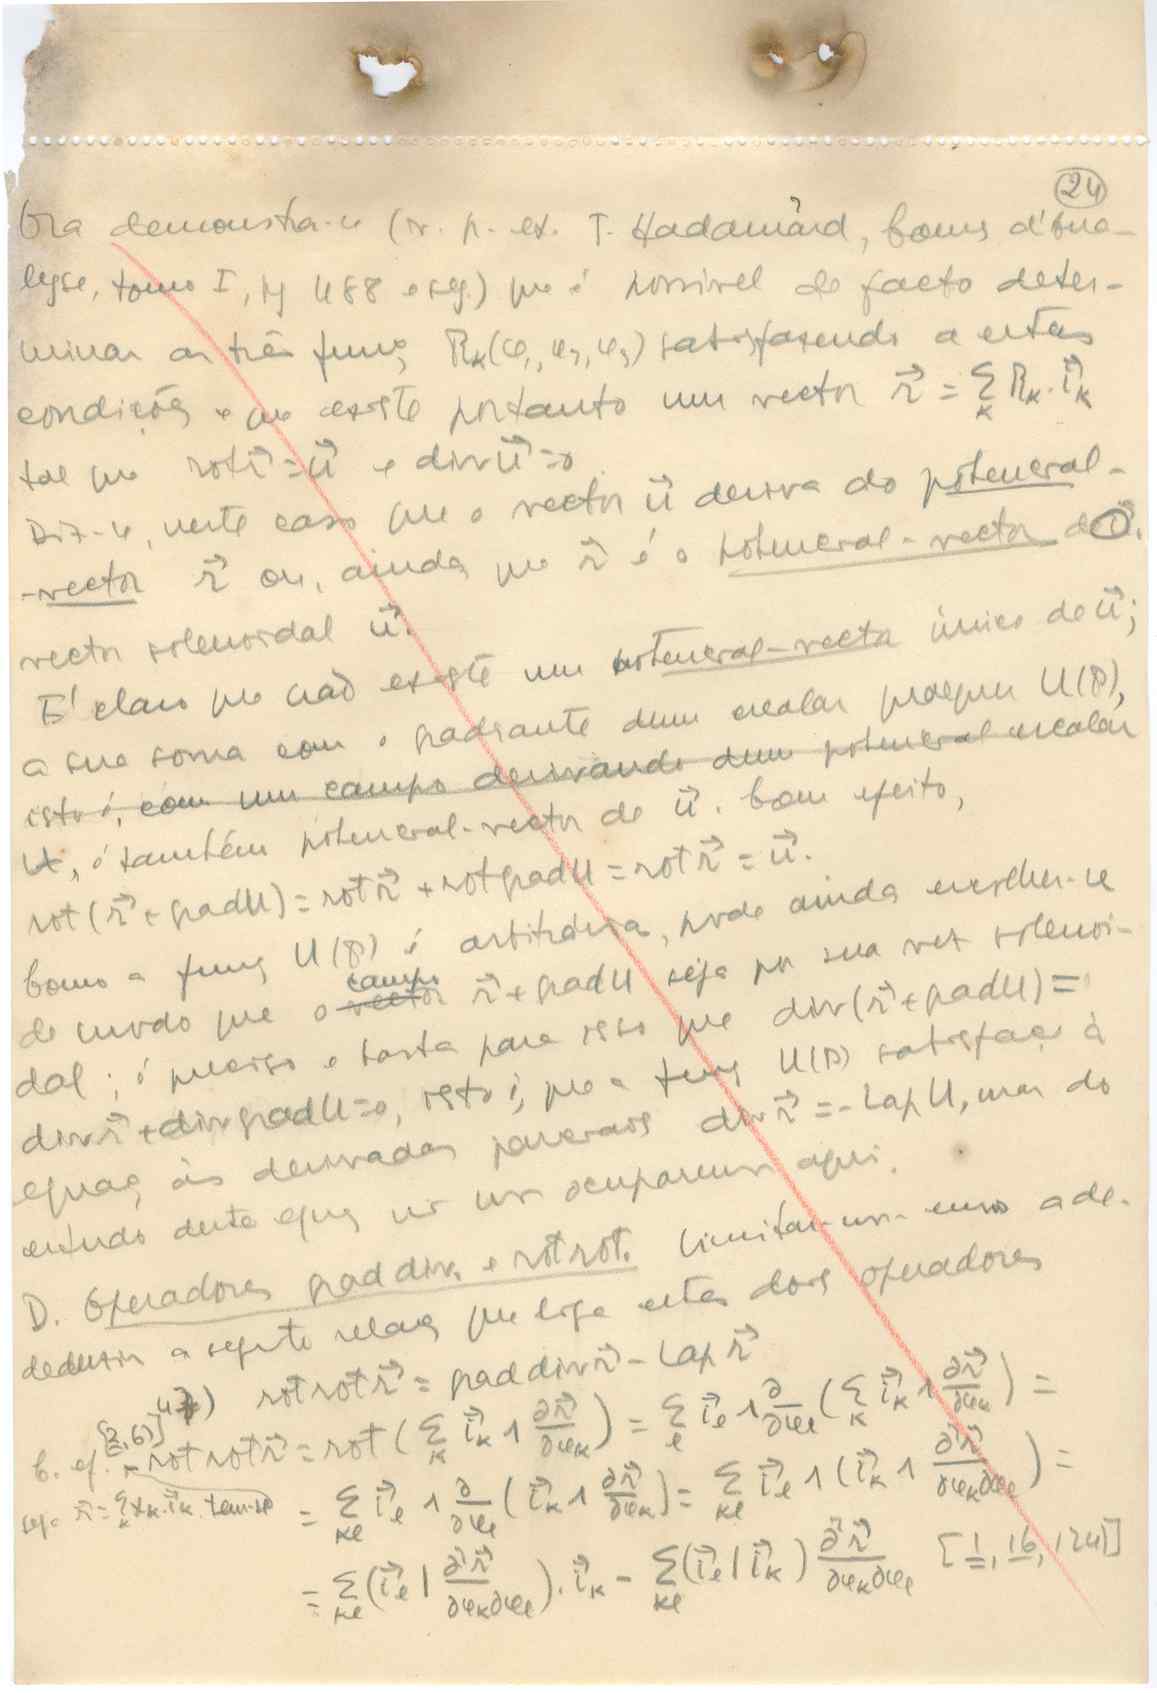 24
Ora demonstra-se (v. p. ex. J. Hadamard, Cours d'Ana-
lyse, tomo I, pg 488 e seg.) que é possivel de facto deter-
minar as três funç. R_k(φ₁, φ₂, φ₃) satisfazendo a estas
condições e que existe portanto um vector r⃗ = Σ_k R_k · i⃗_k
tal que rot r⃗ = u⃗ e div u⃗ = 0
Diz-se, neste caso que o vector u⃗ deriva do potencial-
-vector r⃗ ou, ainda, que r⃗ é o potencial-vector do
vector solenoidal u⃗.
E' claro que não existe um potencial-vector único de u⃗;
a sua soma com o gradiente dum escalar qualquer U(P),
isto é, com um campo derivando dum potencial escalar
U, é também potencial-vector de u⃗. Com efeito,
rot (r⃗ + grad U) = rot r⃗ + rot grad U = rot r⃗ = u⃗.
Como a funç. U(P) é arbitrária, pode ainda escolher-se
de modo que o vector campo r⃗ + grad U seja por sua vez solenoi-
dal; é preciso e basta para isso que div (r⃗ + grad U) =
div r⃗ + div grad U = 0, isto é, que a funç. U(P) satisfaça à
equaç. às derivadas parciais div r⃗ = - Lap U, mas do
estudo desta equaç. não nos ocuparemos aqui.
D. Operadores grad div. e rot rot. Limitar-nos-emos a de-
deduzir a seguinte relaç. que liga estes dois operadores
47) rot rot r⃗ = grad div r⃗ - Lap r⃗
C. ef. [2, 6)] rot rot r⃗ = rot (Σ_k i⃗_k ∧ ∂r⃗/∂φ_k) = Σ_l i⃗_l ∧ ∂/∂φ_l (Σ_k i⃗_k ∧ ∂r⃗/∂φ_k) =
seja r⃗ = Σ_k x_k · i⃗_k. tem-se = Σ_kl i⃗_l ∧ ∂/∂φ_l (i⃗_k ∧ ∂r⃗/∂φ_k) = Σ_kl i⃗_l ∧ (i⃗_k ∧ ∂²r⃗/∂φ_k∂φ_l) =
= Σ_kl (i⃗_l | ∂²r⃗/∂φ_k∂φ_l) · i⃗_k - Σ_kl (i⃗_l | i⃗_k) ∂²r⃗/∂φ_k∂φ_l [1, 16, 124)]